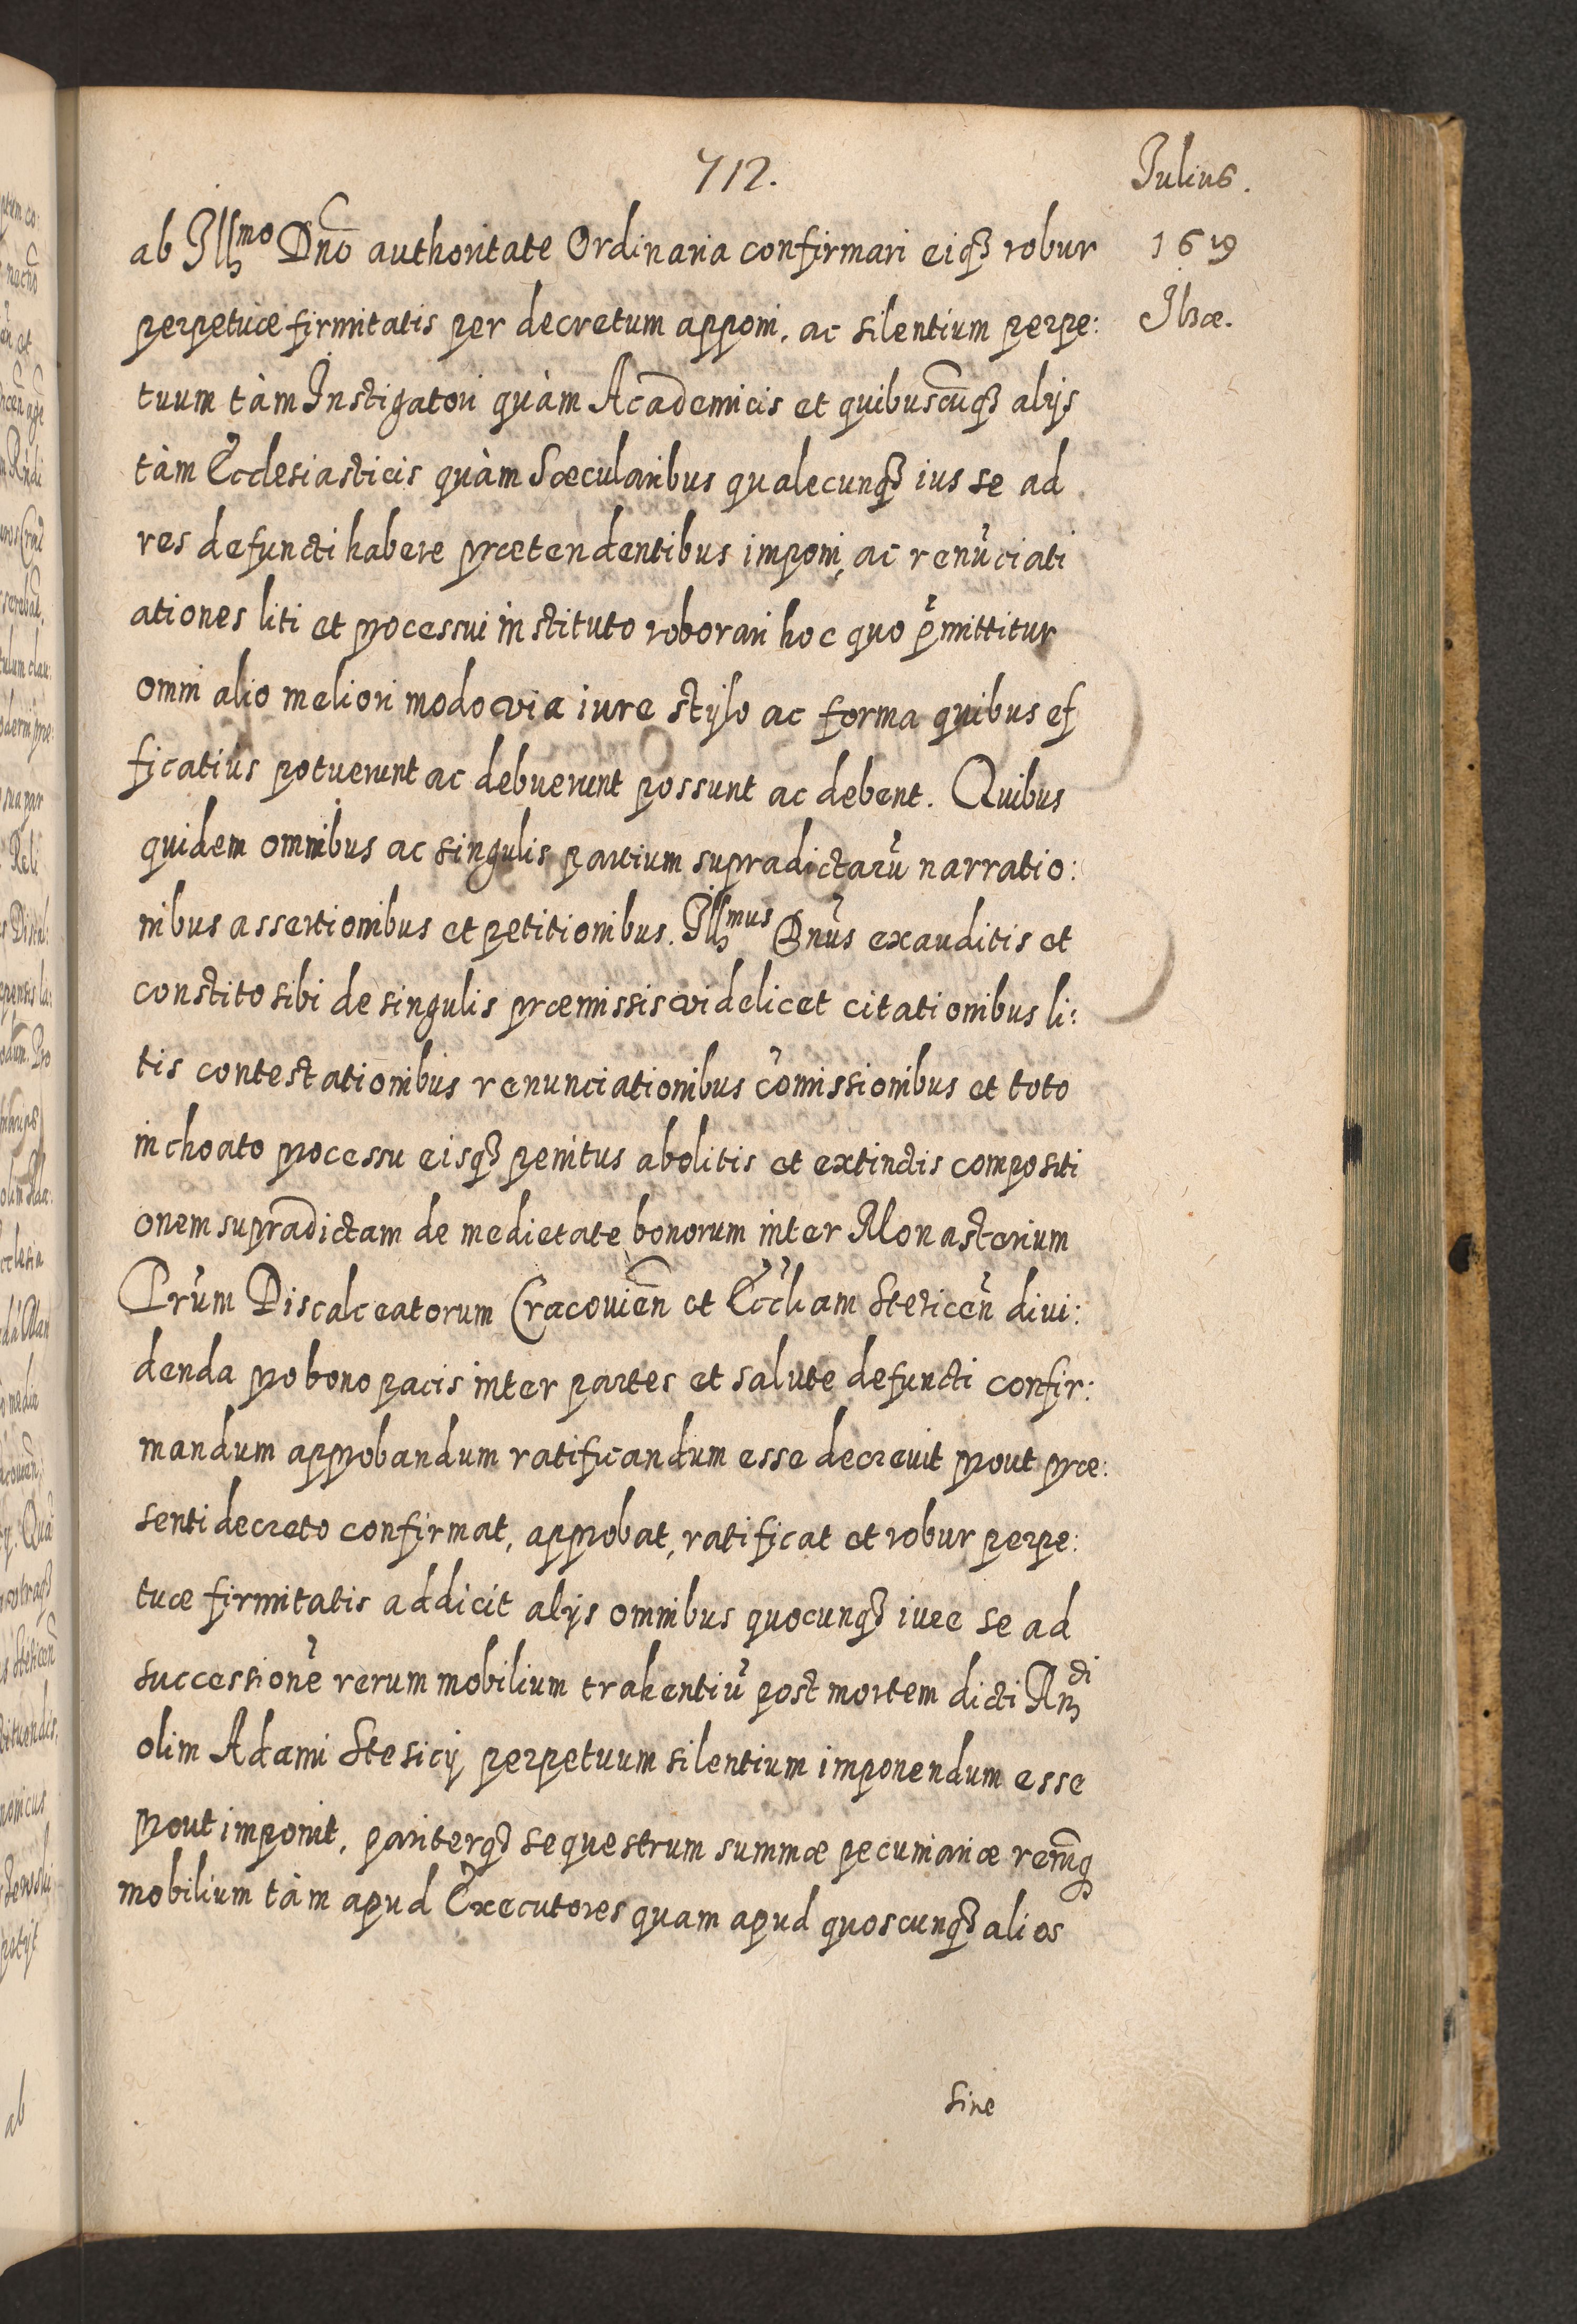 712.
Julius.
1619
Ilzæ.
ab Illmo Dno authoritate Ordinaria confirmari eiq3 robur
perpetuæ firmitatis per decretum apponi, ac silentium perpe:
tuum tàm Instigatori quàm Academicis et quibuscuq3 alijs
tàm Ecclesiasticis quàm Sæcularibus qualecunq3 ius se ad
res defuncti habere prætendentibus imponi, ac renuciati
ationes liti et processui instituto roborari hoc quo pmittitur
omni alio meliori modo via iure stylo ac forma quibus ef
ficatiùs potuerunt ac debuerunt possunt ac debent. Quibus
quidem omnibus ac singulis partium supradictarū narratio:
nibus assertionibus et petitionibus. Illmus Dnus exauditis et
constito sibi de singulis præmissis videlicet citationibus li:
tis contestationibus renunciationibus comissionibus et toto
inchoato processu eisq3 penitus abolitis et extinctis compositi
onem supradictam de medietate bonorum inter Monasterium
Prum Discalceatorum Cracouien et Eccliam Stesicen divi:
denda pro bono pacis inter partes et salute defuncti confir:
mandum approbandum ratificandum esse decrevit prout præ:
senti decreto confirmat, approbat, ratificat et robur perpe:
tuæ firmitatis addicit alijs omnibus quocunq3 iure se ad
successionē rerum mobilium trahentiū post mortem dicti Rndi
olim Adami Stesicij perpetuum silentium imponendum esse
prout imponit, pariterq3 sequestrum summæ pecuniariæ rerumq3
mobilium tàm apud Executores quam apud quoscunq3 alios
sine